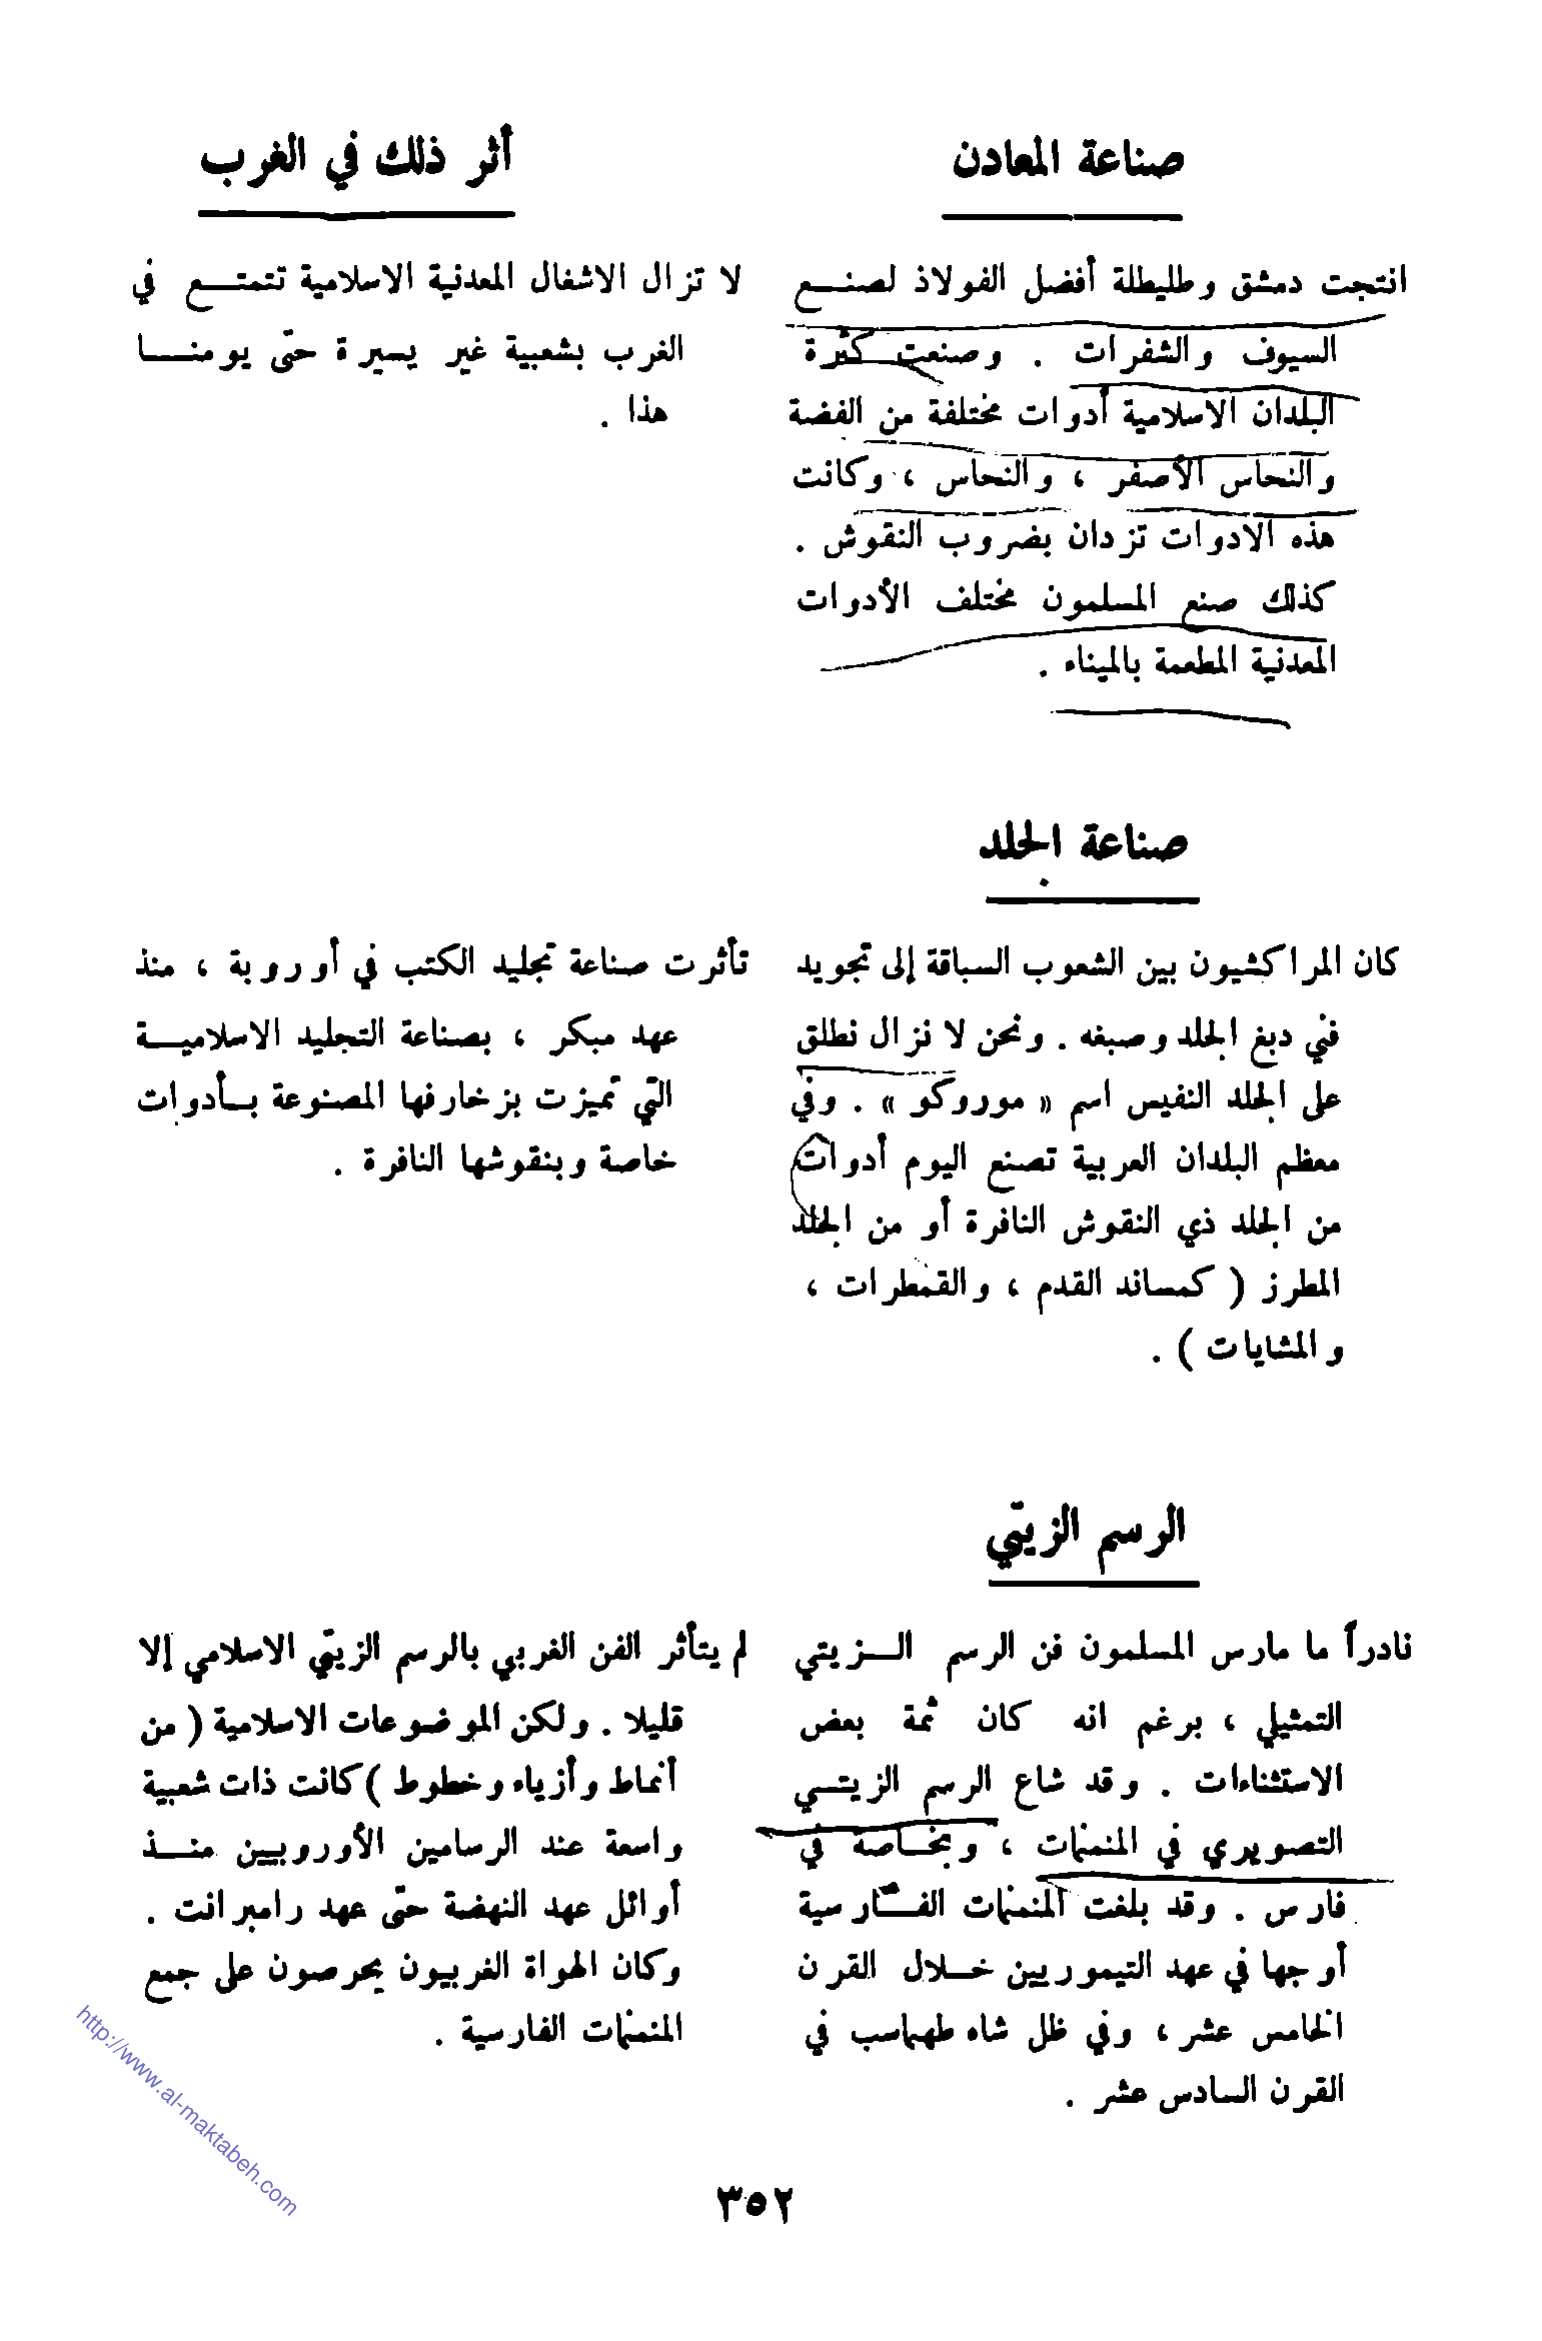 صناعة المعادن
انتجت دمشق وطليطلة أفضل الفولاذ لصنع
السيوف والشفرات . وصنعت كثرة
البلدان الاسلامية أدوات مختلفة من الفضة
والنحاس الأصفر ، والنحاس ، وكانت
هذه الادوات تزدان بضروب النقوش .
كذلك صنع المسلمون مختلف الأدوات
المعدنية المطعمة بالميناء .
أثر ذلك في الغرب
لا تزال الاشغال المعدنية الاسلامية تتمتع في
الغرب بشعبية غير يسيرة حتى يومنا
هذا .
صناعة الجلد
كان المراكشيون بين الشعوب السباقة إلى تجويد
فني دبغ الجلد وصبغه . ونحن لا نزال نطلق
على الجلد النفيس اسم « موروكو » . وفي
معظم البلدان العربية تصنع اليوم أدوات
من الجلد ذي النقوش النافرة أو من الجلد
المطرز ( كمساند القدم ، والقمطرات ،
والمشايات ) .
تأثرت صناعة تجليد الكتب في أوروبة ، منذ
عهد مبكر ، بصناعة التجليد الاسلامية
التي تميزت بزخارفها المصنوعة بأدوات
خاصة وبنقوشها النافرة .
الرسم الزيتي
نادراً ما مارس المسلمون فن الرسم الزيتي
التمثيلي ، برغم انه كان ثمة بعض
الاستثناءات . وقد شاع الرسم الزيتي
التصويري في المنمنمات ، وبخاصة في
فارس . وقد بلغت المنمنمات الفارسية
أوجها في عهد التيموريين خلال القرن
الخامس عشر ، وفي ظل شاه طهماسب في
القرن السادس عشر .
لم يتأثر الفن الغربي بالرسم الزيتي الاسلامي إلا
قليلا . ولكن الموضوعات الاسلامية ( من
أنماط وأزياء وخطوط ) كانت ذات شعبية
واسعة عند الرسامين الأوروبيين منذ
أوائل عهد النهضة حتى عهد رامبرانت .
وكان الهواة الغربيون يحرصون على جمع
المنمنمات الفارسية .
٣٥٢
http://www.al-maktabeh.com